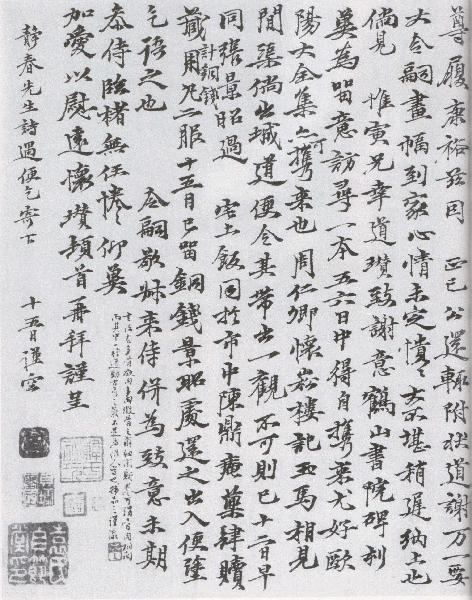 尊履康裕兹因 正己公還輒附狀道謝万一要
大令嗣畫幅到家心情未定憒〻不堪稍遲納上也
倘見 惟寅兄幸道瓚致謝意鶴山書院碑刻
冀為留意訪尋一本五六日中得自携來尤好歐
陽大全集亦可携來也周仁卿懷菘樓記五馬相見
間渠倘出城道便令其帶出一觀不可則已十二日早
同張景昭過 宅上飯回於市中陳鼎庵藥肆贖
計銅錢
藏用丸一服十五月已留銅錢景昭處還之出入便望
乞語之也 令嗣敬姊來侍併為致意未期
叅侍臨楮無任惓〻仰冀
加愛以慰遠懷瓚頓首再拜謹呈
静春先生詩遇便乞寄下 十五日謹空